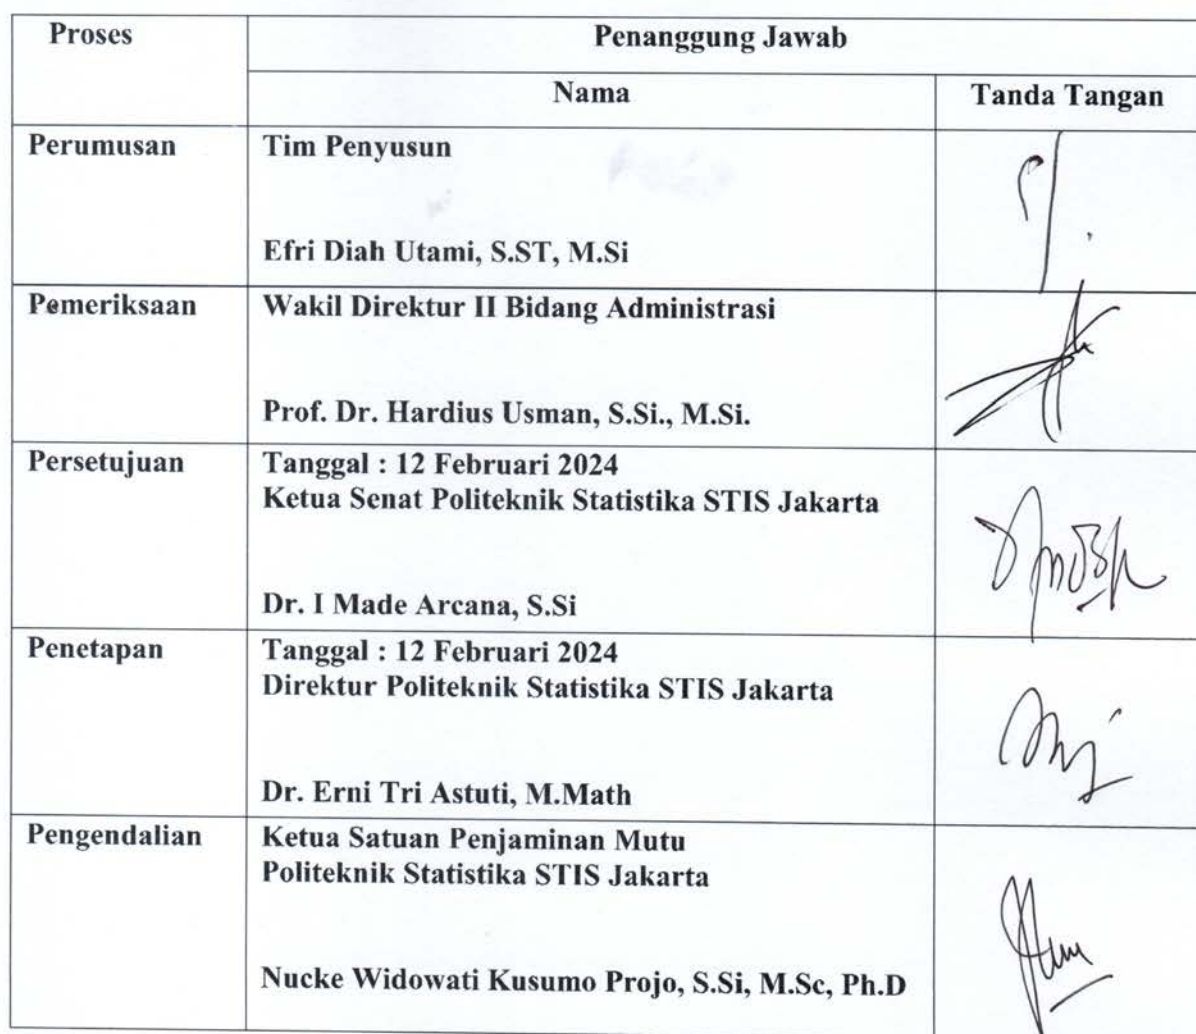 Proses
Penanggung Jawab
Nama
Tanda Tangan
Perumusan
Tim Penyusun
Efri Diah Utami, S.ST, M.Si
Pemeriksaan
Wakil Direktur II Bidang Administrasi
Prof. Dr. Hardius Usman, S.Si., M.Si.
Persetujuan
Tanggal : 12 Februari 2024
Ketua Senat Politeknik Statistika STIS Jakarta
Dr. I Made Arcana, S.Si
Penetapan
Tanggal : 12 Februari 2024
Direktur Politeknik Statistika STIS Jakarta
Dr. Erni Tri Astuti, M.Math
Pengendalian
Ketua Satuan Penjaminan Mutu
Politeknik Statistika STIS Jakarta
Nucke Widowati Kusumo Projo, S.Si, M.Sc, Ph.D